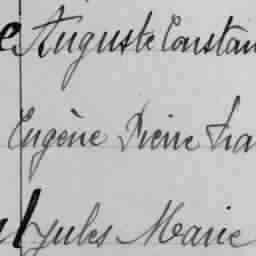 Auguste Constan
Eugène Pierre Fra
Jules Marie